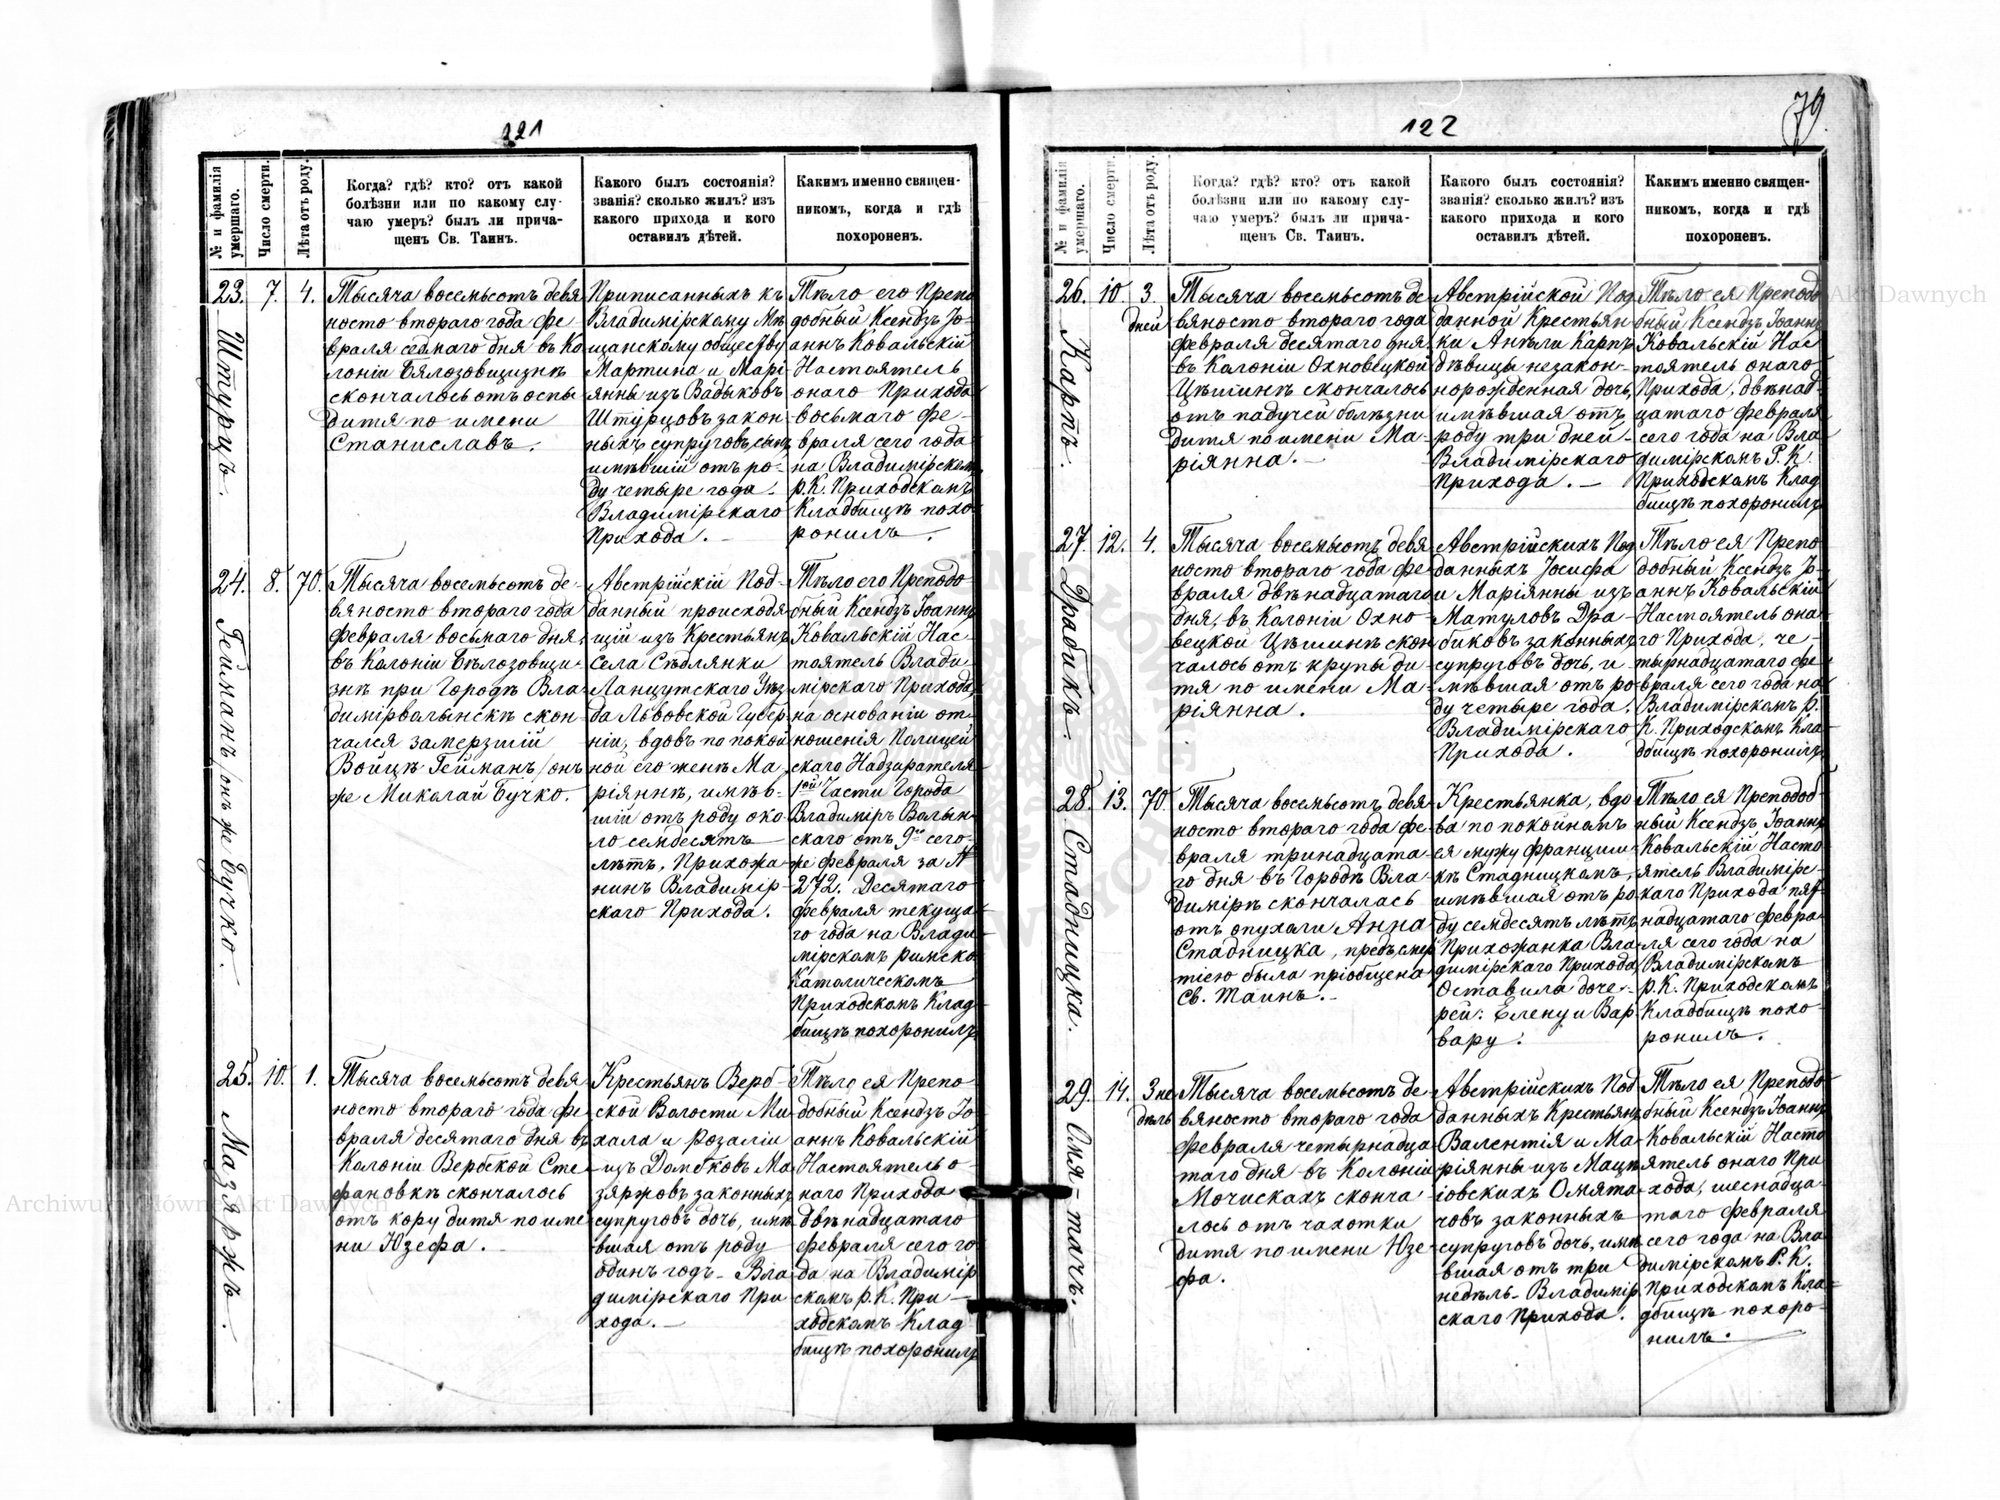 121
№ и фамилія умершаго.
Число смерти.
Лѣта отъ роду.
Когда? гдѣ? кто? отъ какой
болѣзни или по какому слу-
чаю умеръ? былъ ли прича-
щенъ Св. Таинъ.
Какого былъ состоянія?
званія? сколько жилъ? изъ
какого прихода и кого
оставилъ дѣтей.
Какимъ именно священ-
никомъ, когда и гдѣ
похороненъ.
23.
Штурцъ.
7.
4.
Тысяча восемьсотъ девя
носто втораго года фе-
враля седмаго дня въ Ко
лоніи Бялозовщизнѣ
скончалось отъ оспы
дитя по имени
Станиславъ.
Приписанныхъ къ
Владимірскому Мѣ
щанскому обществу
Мартина и Марі-
янны изъ Вадыковъ
Штурцовъ закон
ныхъ супруговъ, сынъ
имѣвшій отъ ро-
ду четыре года.
Владимірскаго
Прихода.
Тѣло его Препо
добный Ксендзъ Іо-
аннъ Ковальскій
Настоятель
онаго Прихода
восьмаго фе-
враля сего года
на Владимірскомъ
р. К. Приходскомъ
Кладбищѣ похо
ронилъ.
24.
Гейманъ /онъ ж Бучко.
8.
70.
Тысяча восемьсотъ де-
вяносто втораго года
февраля восьмаго дня,
въ Колоніи Бѣлозовщи-
знѣ при Городѣ Вла
димірволынскѣ скон-
чался замерзшій
Войцѣ Гейманъ /онъ
же Миколай Бучко.
Австрійскій Под-
данный происходя
щій изъ Крестьянъ
Села Сѣдлянки
Ланцутскаго Уѣз
да Львовской Губер
ніи, вдовъ по покой
ной его женѣ Ма-
ріяннѣ, имѣв-
шій отъ роду око
ло семдесятъ
лѣтъ. Прихожа-
нинъ Владимір
скаго Прихода.
Тѣло его Преподо
бный Ксендзъ Іоаннъ
Ковальскій Нас-
тоятель Влади-
мірскаго Прихода
на основаніи от-
ношенія Полицей
скаго Надзирателя
1ой Части Города
Владиміръ Волын
скаго отъ 9го сего-
же февраля за №
272. Десятаго
февраля текуща-
го года на Влади
мірскомъ римско
Католическомъ
Приходскомъ Клад-
бищѣ похоронилъ
25.
Мазяржъ.
10.
1.
Тысяча восемьсотъ девя
носто втораго года фе
враля десятаго дня въ
Колоніи Вербской Сте
фановкѣ скончалось
отъ кору дитя по име
ни Юзефа.
Крестьянъ Верб-
ской Волости Ми
хала и Розаліи
изъ Домбковъ Ма
зяржовъ законныхъ
супруговъ дочь, имѣ
вшая отъ роду
одинъ годъ - Вла
димірскаго При
хода.
Тѣло ея Препо-
добный Ксендзъ Іо
аннъ Ковальскій
Настоятель о-
наго Прихода
двѣнадцатаго
февраля сего го
да на Владимір
скомъ р. К. При-
ходскомъ Клад
бищѣ похоронилъ
122
79.
№ и фамилія умершаго.
Число смерти.
Лѣта отъ роду.
Когда? гдѣ? кто? отъ какой
болѣзни или по какому слу-
чаю умеръ? былъ ли прича-
щенъ Св. Таинъ.
Какого былъ состоянія?
званія? сколько жилъ? изъ
какого прихода и кого
оставилъ дѣтей.
Какимъ именно священ-
никомъ, когда и гдѣ
похороненъ.
26.
Карпъ.
10
3.
дней
Тысяча восемьсотъ де
вяносто втораго года
февраля десятаго дня
въ Колоніи Охновецкой
Цѣшинѣ скончалось
отъ падучей болѣзни
дитя по имени Ма-
ріянна.
Австрійской Под
данной Крестьян
ки Анѣли Карпъ
дѣвицы незакон-
норожденная дочь,
имѣвшая отъ
роду три дней -
Владимірскаго
Прихода.
Тѣло ея Преподо
бный Ксендзъ Іоаннъ
Ковальскій Нас
тоятель онаго
Прихода, двѣнад
цатаго февраля
сего года на Вла
димірскомъ Р. К.
Приходскомъ Клад
бищѣ похоронилъ
27.
Драбикъ.
12.
4.
Тысяча восемьсотъ девя
носто втораго года фе
враля двѣнадцатаго
дня, въ Колоніи Охно
вецкой Цѣшинѣ скон
чалось отъ крупы ди
тя по имени Ма-
ріянна.
Австрійскихъ Под
данныхъ Іосифа
и Маріянны изъ
Матуловъ Дра
биковъ законныхъ
супруговъ дочь, и-
мѣвшая отъ ро
ду четыре года.
Владимірскаго
Прихода.
Тѣло ея Препо
добный Ксендзъ Іо-
аннъ Ковальскій
Настоятель она-
го Прихода, че-
тырнадцатаго фе-
враля сего года на
Владимірскомъ р.
К. Приходскомъ Кла
дбищѣ похоронилъ
28.
Стадницка.
13.
70.
Тысяча восемьсотъ девя
носто втораго года фе-
враля тринадцата-
го дня въ Городѣ Вла
димірѣ скончалась
отъ опухоли Анна
Стадницка, предъ смер
тією была пріобщена
Св. Таинъ.
Крестьянка, вдо
ва по покойномъ
ея мужу Францишк
кѣ Стадницкомъ,
имѣвшая отъ ро
ду семдесятъ лѣтъ
Прихожанка Вла
димірскаго Прихода,
Оставила доче-
рей: Елену и Вар
вару.
Тѣло ея Преподоб
ный Ксендзъ Іоаннъ
Ковальскій Насто
ятель Владимірс-
каго Прихода, пят
надцатаго февра
ля сего года на
Владимірскомъ
р. К. Приходскомъ
Кладбищѣ похо-
ронилъ.
29.
Омя-тачъ.
14.
3 не
дѣль
Тысяча восемьсотъ де-
вяносто втораго года
февраля четырнадца
таго дня въ Колоніи
Мочискахъ сконча-
лось отъ чахотки
дитя по имени Юзе-
фа.
Австрійскихъ Под
данныхъ Крестьянъ
Валентія и Ма-
ріянны изъ Мацѣ
іовскихъ Омята-
човъ законныхъ
супруговъ дочь, имѣ
вшая отъ три
недѣль - Владимір
скаго Прихода.
Тѣло ея Преподо
бный Ксендзъ Іоаннъ
Ковальскій Насто
ятель онаго При
хода, шеснадца-
таго февраля
сего года на Вла
димірскомъ Р. К.
Приходскомъ Кла-
дбищѣ похоро-
нилъ.
Archiwum Główne Akt Dawnych